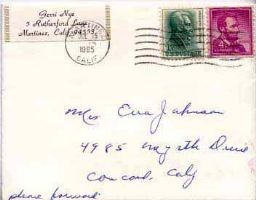 Gerri Nye
5 Rutherford Lane
Martinez, Calif. 94553
1965
CALIF.
Mrs Eva Johnson
4985 Myrtle Drive
Concord, Calif
please forward